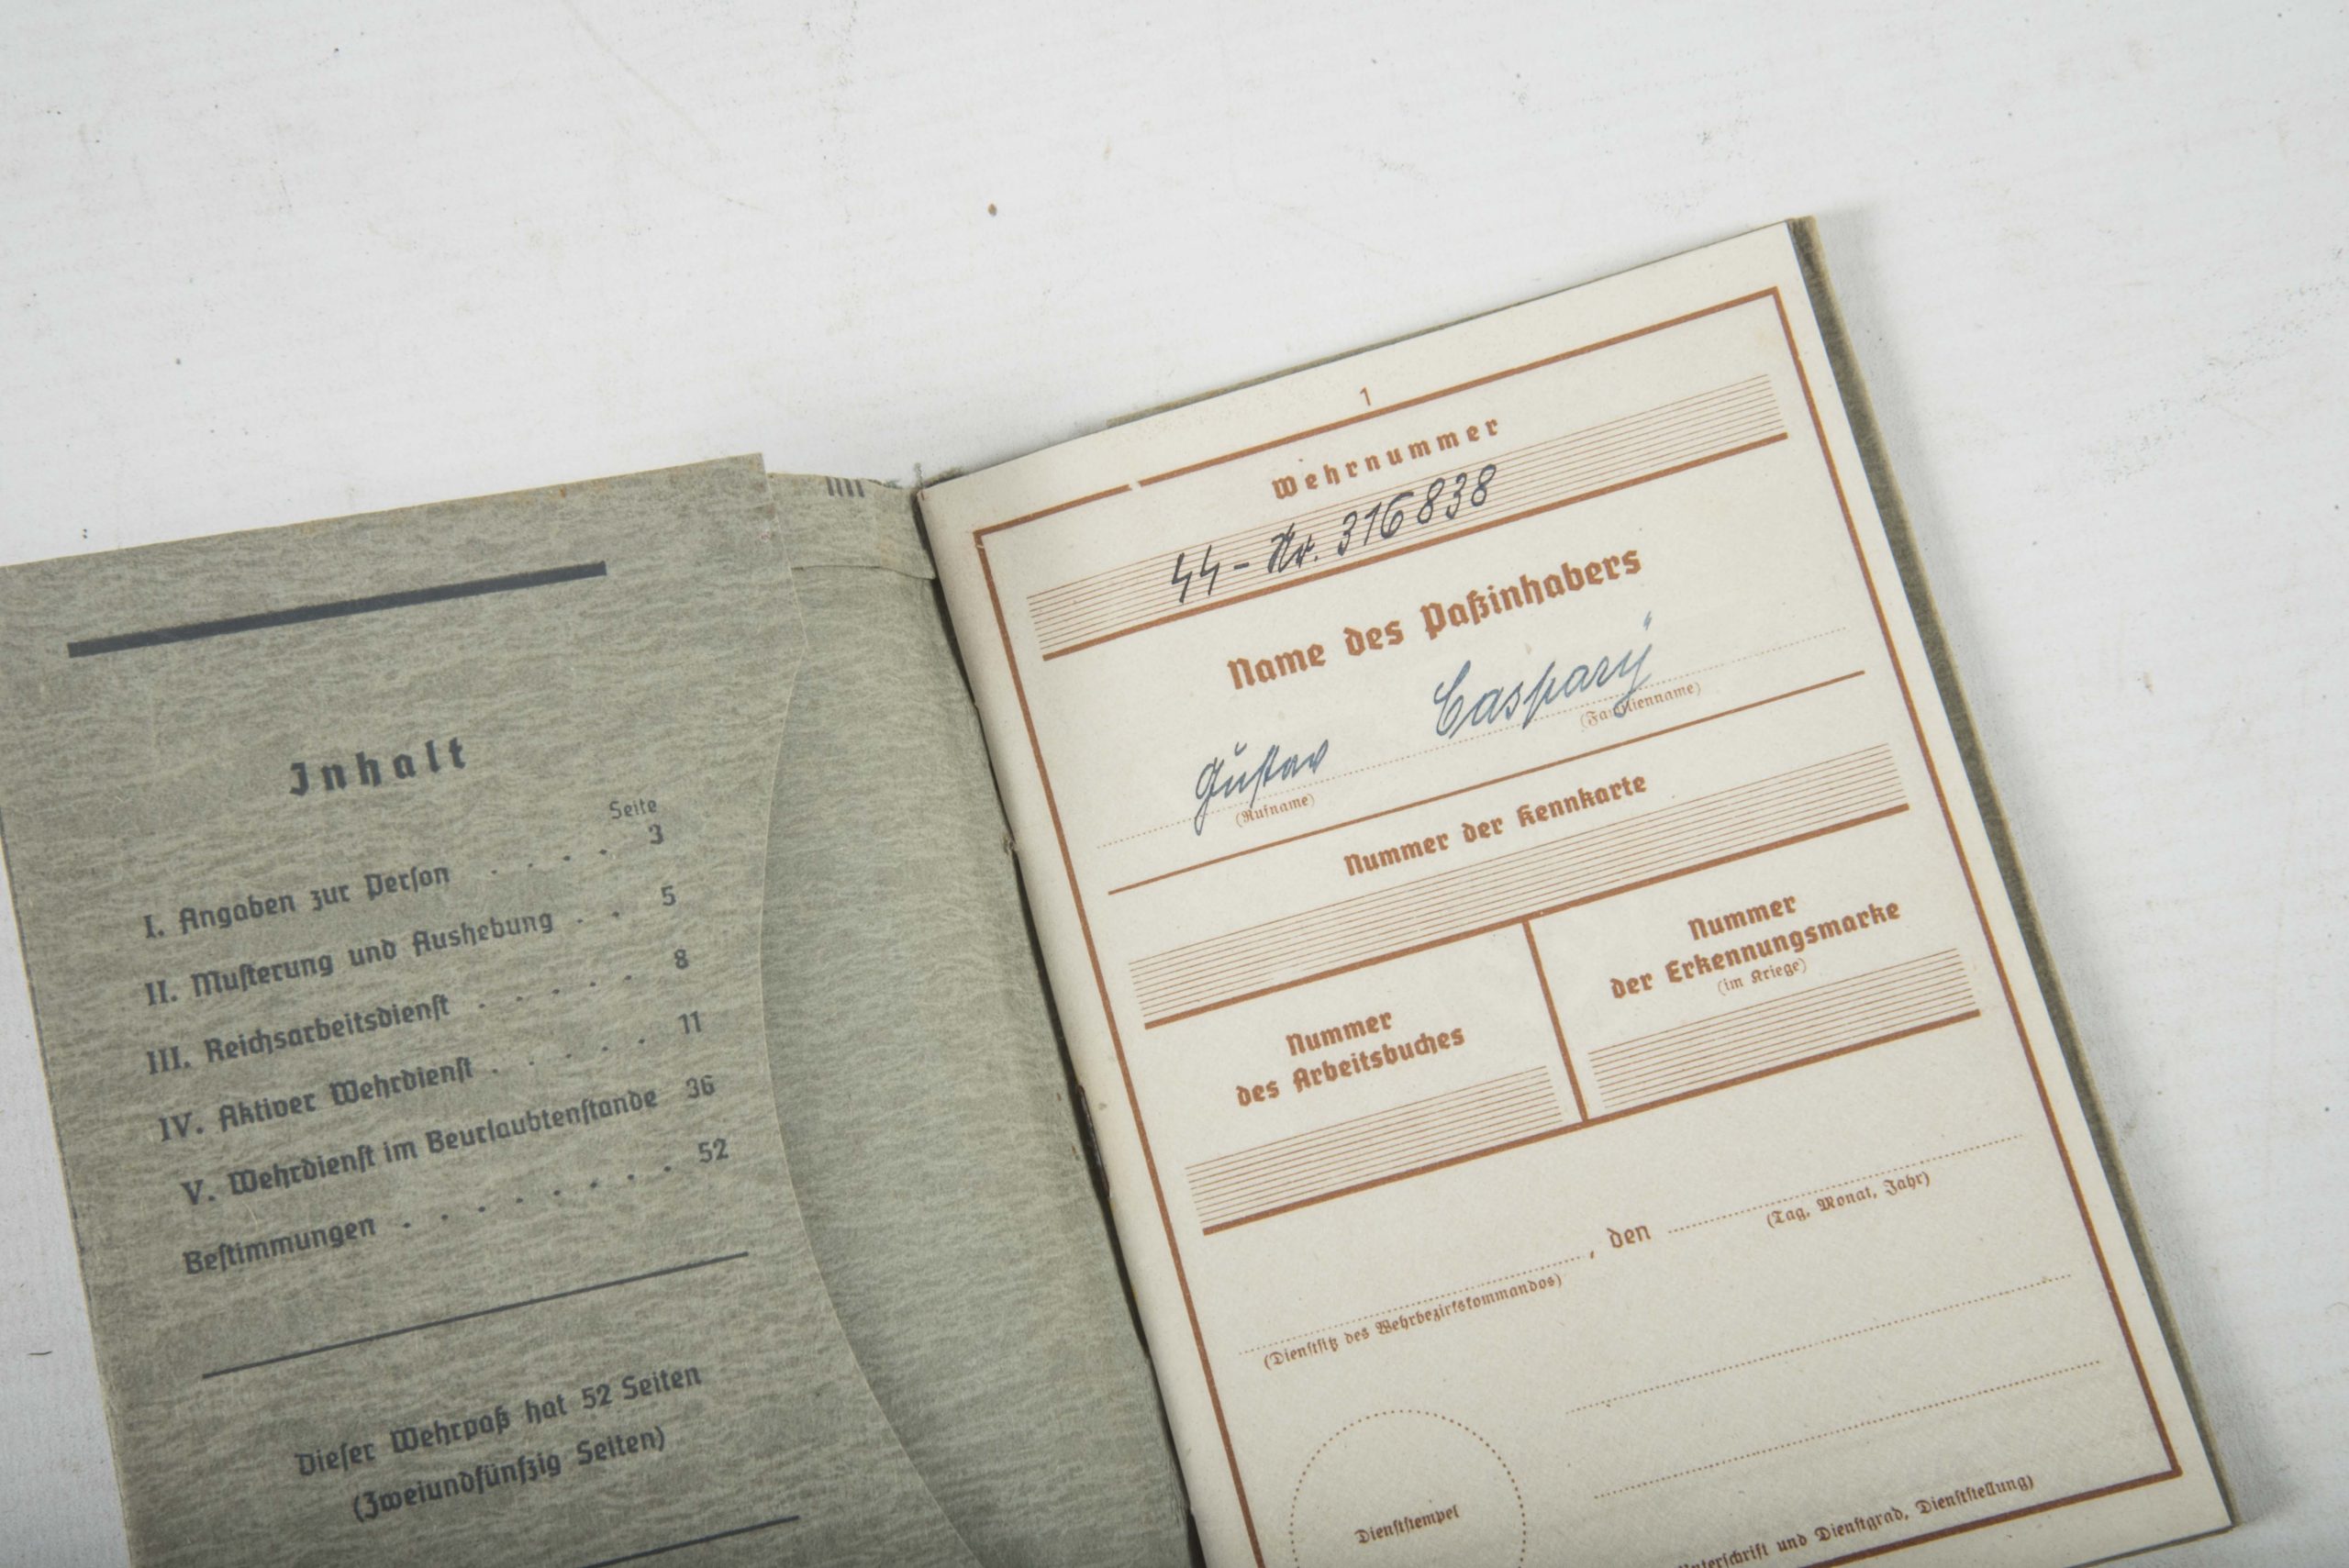 Inhalt
Seite
I. Angaben zur Person . . . . 3
II. Musterung und Aushebung . . 5
III. Reichsarbeitsdienst . . . . . 8
IV. Aktiver Wehrdienst . . . . . 11
V. Wehrdienst im Beurlaubtenstande 36
Bestimmungen . . . . . . . . 52
Dieser Wehrpaß hat 52 Seiten
(Zweiundfünfzig Seiten)
1
Wehrnummer
SS-Nr. 316838
Name des Paßinhabers
Gustav Caspary
(Rufname) (Familienname)
Nummer der Kennkarte
Nummer
des Arbeitsbuches
Nummer
der Erkennungsmarke
(im Kriege)
, den
(Dienstsitz des Wehrbezirkskommandos) (Tag, Monat, Jahr)
Dienststempel
Unterschrift und Dienstgrad, Dienststellung)